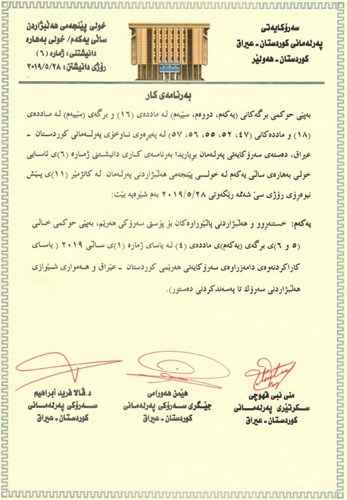 سەرۆکایەتی
پەرلەمانی کوردستان - عیراق
کوردستان - هەولێر
خولی پێنجەمی هەڵبژاردن
ساڵی یەکەم/ خولی بەهارە
دانیشتنی: ژمارە (٦)
ڕۆژی دانیشتن: ٢٠١٩/٥/٢٨
بەرنامەی کار
بەپێی حوکمی برگەکانی (یەکەم، دووەم، سێیەم) لە ماددەی (١٦) و برگەی (سێیەم) لە ماددەی
(١٨) و ماددەکانی (٤٧، ٥٢، ٥٥، ٥٦، ٥٧) لە پەیڕەوی ناوخۆی پەرلەمانی کوردستان –
عیراق، دەستەی سەرۆکایەتی پەرلەمان بڕیاریدا بەرنامەی کاری دانیشتنی ژمارە (٦)ی ئاسایی
خولی بەهارەی ساڵی یەکەم لە خولی پێنجەمی هەڵبژاردنی پەرلەمان لە کاتژمێر (١١)ی پێش
نیوەڕۆی ڕۆژی سێ شەممە ڕێکەوتی ٢٠١٩/٥/٢٨ بەم شێوەیە بێت:
یەکەم: خستنەڕوو و هەڵبژاردنی پاڵێوراوەکان بۆ پۆستی سەرۆکی هەرێم، بەپێی حوکمی خاڵی
(٥ و ٦)ی برگەی (یەکەم)ی ماددەی (٤) لە یاسای ژمارە (١)ی ساڵی ٢٠١٩ (یاسای
کاراکردنەوەی دامەزراوەی سەرۆکایەتی هەرێمی کوردستان – عێراق و هەمواری شێوازی
هەڵبژاردنی سەرۆك تا پەسەندکردنی دەستور).
منی نبی قهوچی
سکرتێری پەرلەمانی
کوردستان - عیراق
هێمن هەورامی
جێگری سەرۆکی پەرلەمانی
کوردستان - عیراق
د.ڤالا فرید ابراهیم
سەرۆکی پەرلەمانی
کوردستان - عیراق